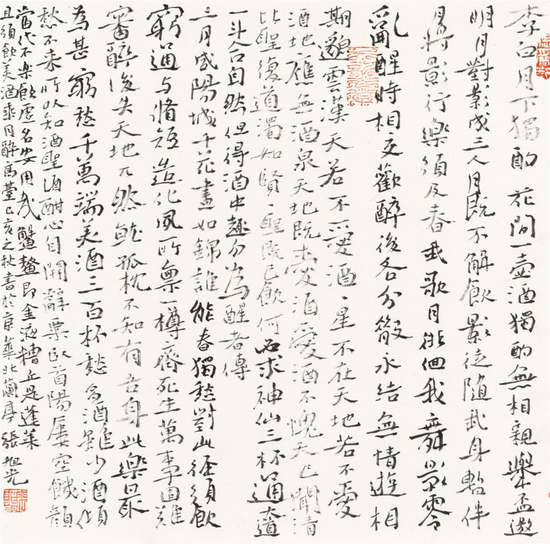 李白月下獨酌 花間一壺酒獨酌無相親舉盃邀
明月對影成三人月既不解飲影徒隨我身暫伴
月將影行樂須及春我歌月徘徊我舞影零
亂醒時相交歡醉後各分散永結無情遊相
期邈雲漢天若不愛酒星不在天地若不愛
酒地應無酒泉天地既愛酒愛酒不愧天已聞清
比聖復道濁如賢聖既已飲何必求神仙三杯通大道
一斗合自然但得酒中趣勿為醒者傳
三月咸陽城千花晝如錦誰能春獨愁對此徑須飲
窮通与脩短造化夙所稟一樽齊死生萬事固難
審醉後失天地兀然就孤枕不知有吾身此樂最
為甚窮愁千萬端美酒三百杯愁多酒雖少酒傾
愁不來所以知酒聖酒酣心自開辭粟臥首陽屢空飢顏
當代不樂飲虛名安用哉蟹螯即金液糟丘是蓬萊
且須飲美酒乘月醉高臺己亥之秋書於京華北蘭亭張旭光